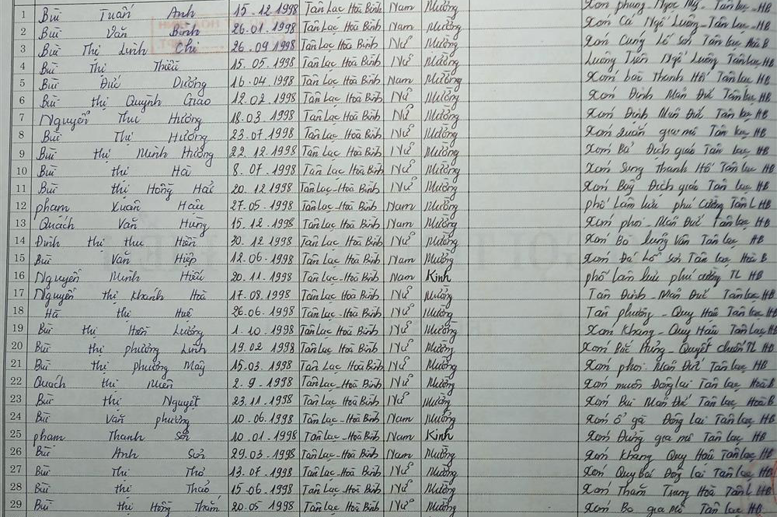 1 Bùi Tuấn Anh 15.12.1998 Tân Lạc Hoà Bình Nam Mường Xóm phung Ngọc Mỹ - Tân Lạc, HB
2 Bùi Văn Bình 26.01.1998 Tân Lạc Hoà Bình Nam Mường Xóm Ngổ Luông Tân Lạc HB
3 Bùi Thị Linh Chi 26.09.1998 Tân Lạc Hoà Bình Nữ Mường Xóm Lỗ Sơn Tân Lạc Hoà B
4 Bùi Thị 15.05.1998 Tân Lạc Hoà Bình Nữ Mường Ngổ Luông Tân Lạc HB
5 Bùi Đức Dương 16.04.1998 Tân Lạc Hoà Bình Nam Mường Xóm Thanh Hối Tân Lạc HB
6 Bùi thị Quỳnh Giao 12.02.1998 Tân Lạc Hoà Bình Nữ Mường Xóm Định Mãn Đức Tân Lạc HB
7 Nguyễn Thu Hương 18.03.1998 Tân Lạc Hoà Bình Nữ Mường Xóm Định Mãn Đức Tân Lạc HB
8 Bùi Thị Hương 23.07.1998 Tân Lạc Hoà Bình Nữ Mường Xóm gia mô Tân Lạc HB
9 Bùi thị Minh Hường 22.12.1998 Tân Lạc Hoà Bình Nữ Mường Xóm Địch giáo Tân Lạc HB
10 Bùi thị Hà 8.07.1998 Tân Lạc Hoà Bình Nữ Mường Xóm Sung Thanh Hối Tân L HB
11 Bùi thị Hồng Hải 20.12.1998 Tân Lạc Hoà Bình Nữ Mường Xóm Địch giáo Tân Lạc HB
12 phạm Xuân 27.05.1998 Tân Lạc Hoà Bình Nam Mường phố Lâm lưu phú Cường Tân L HB
13 Quách Văn Hùng 15.12.1998 Tân Lạc Hoà Bình Nam Mường Xóm phoi Mãn Đức Tân Lạc HB
14 Đinh thị thu Hiền 20.12.1998 Tân Lạc Hoà Bình Nữ Mường Xóm Bo Lũng Vân Tân Lạc HB
15 Bùi Văn Hiệp 12.06.1998 Tân Lạc Hoà Bình Nam Mường Xóm Lỗ Sơn Tân Lạc Hoà B
16 Nguyễn Minh Hiếu 20.11.1998 Tân Lạc - Hoà Bình Nam Kinh phố lâm lưu phú cường TL HB
17 Nguyễn thị Khánh Hoà 17.08.1998 Tân Lạc - Hoà Bình Nữ Mường Tân Định - Mãn Đức Tân Lạc HB
18 Hà thị Huệ 26.06.1998 Tân Lạc - Hoà Bình Nữ Mường Tân phương - Quy Hậu Tân Lạc HB
19 Bùi thị Hiền Lương 1.10.1998 Tân Lạc Hoà Bình Nữ Mường Xóm Khang - Quy Hậu Tân L HB
20 Bùi thị phương Linh 19.02.1998 Tân Lạc Hoà Bình Nữ Mường Xóm Hưng - Quyết chiến TL HB
21 Bùi thị phương Mây 15.03.1998 Tân Lạc Hoà Bình Nữ Mường Xóm phoi Mãn Đức Tân Lạc HB
22 Quách thị Miên 2.9.1998 Tân Lạc - Hoà Bình Nữ Mường Xóm muôn Đông lai Tân Lạc Hoà B
23 Bùi thị Nguyệt 23.11.1998 Tân Lạc - Hoà Bình Nữ Mường Xóm Bui Mãn Đức Tân Lạc Hoà B
24 Bùi Văn phương 10.06.1998 Tân Lạc - Hoà Bình Nam Mường Xóm ổ gà Đông lai Tân Lạc HB
25 phạm Thanh Sơn 10.01.1998 Tân Lạc - Hoà Bình Nam Kinh Xóm gia mô Tân Lạc HB
26 Bùi Anh Sơn 29.03.1998 Tân Lạc - Hoà Bình Nam Mường Xóm Khang Quy Hậu Tân Lạc HB
27 Bùi Thị Thơ 13.07.1998 Tân Lạc - Hoà Bình Nữ Mường Xóm Đông lai Tân Lạc HB
28 Bùi thị Thảo 15.06.1998 Tân Lạc - Hoà Bình Nữ Mường Xóm Tham Trung Hoà Tân L HB
29 Bùi thị Hồng Thắm 20.05.1998 Tân Lạc Hoà Bình Nữ Mường Xóm Bo gia mô Tân Lạc HB